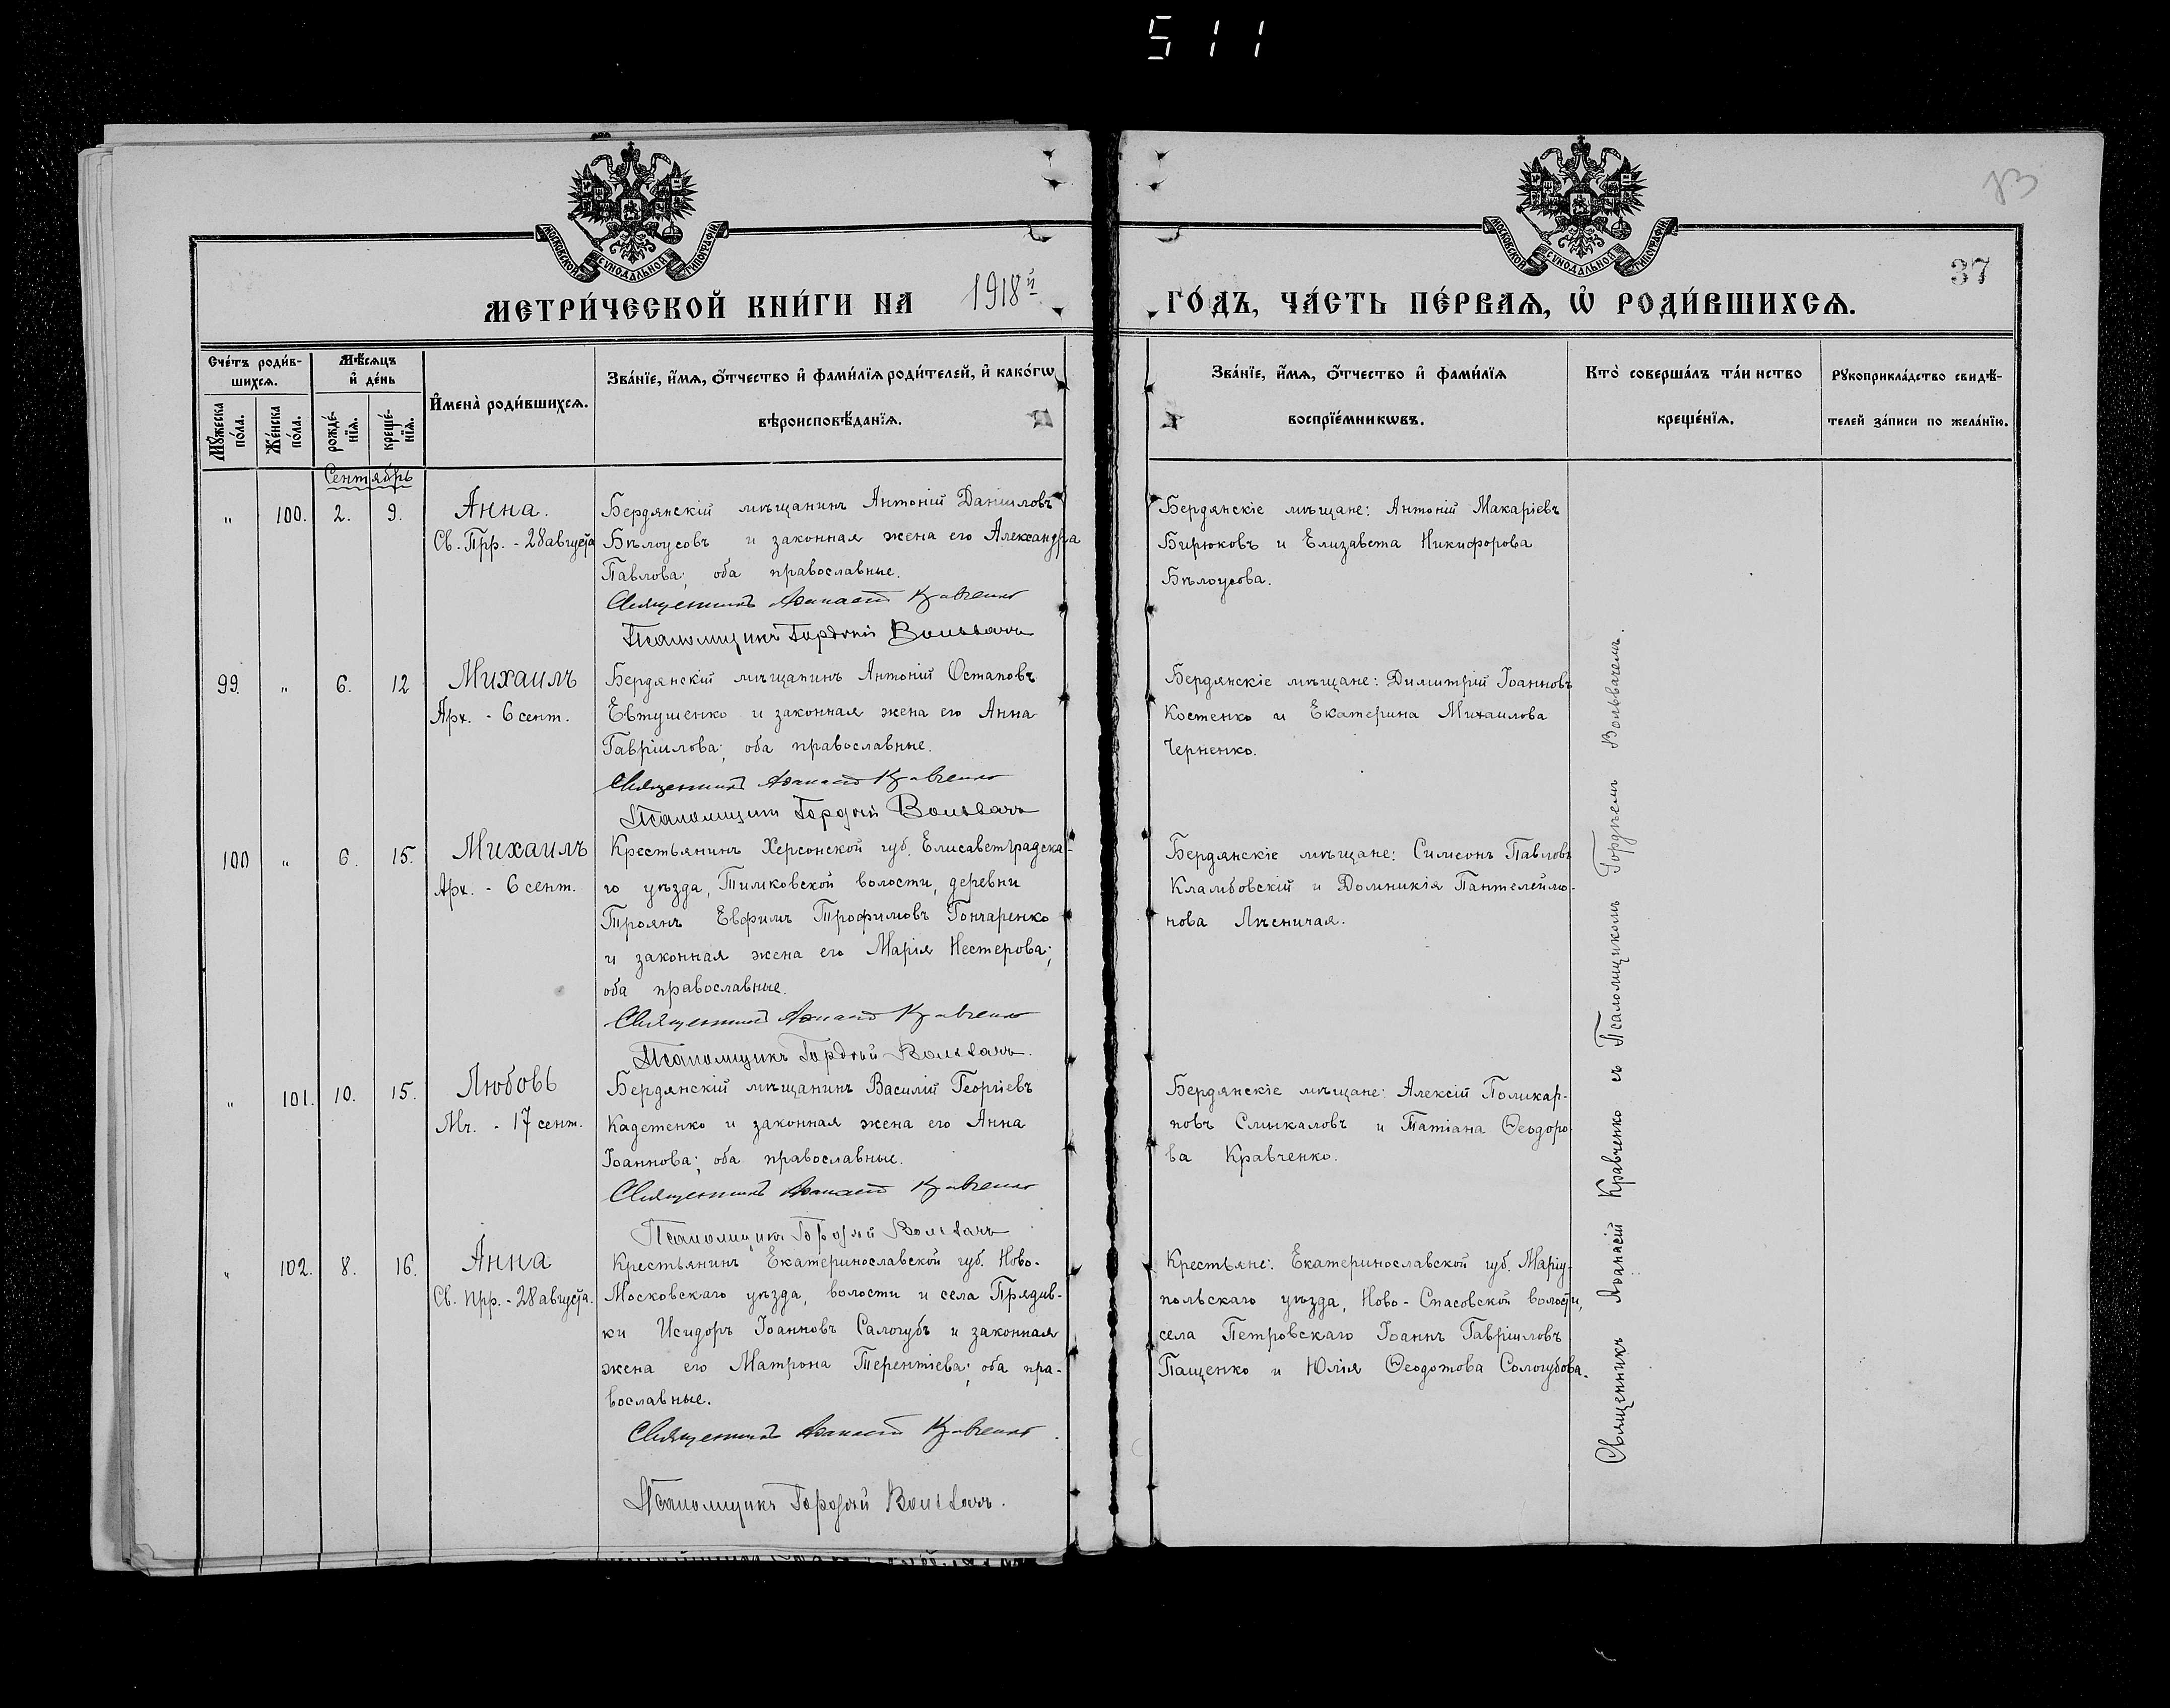 511
МОСКОВСКОЙ СѴНОДАЛЬНОЙ ТИПОГРАФІИ
МОСКОВСКОЙ СѴНОДАЛЬНОЙ ТИПОГРАФІИ
37
МЕТРИ́ЧЕСКОЙ КНИ́ГИ НА 1918й ГО́ДЪ, ЧА́СТЬ ПЕ́РВАѦ, Ѡ҆ РОДИ́ВШИХСѦ.
Сче́тъ роди́в-
шихсѧ.
Мꙋ́жеска по́ла.
Же́нска по́ла.
Мѣ́сѧцъ
и҆ де́нь
рожде́-
нїѧ.
креще́-
нїѧ.
И҆мена̀ роди́вшихсѧ.
Зва́нїе, и҆́мѧ, ѻ҆́тчество и҆ фами́лїѧ роди́телей, и҆ како́гѡ
вѣроисповѣ́данїѧ.
Зва́нїе, и҆́мѧ, ѻ҆́тчество и҆ фами́лїѧ
воспрїе́мникѡвъ.
Кто̀ соверша́лъ та́инство
креще́нїѧ.
Рꙋкоприкла́дство свидѣ́-
телей за́писи по жела́нїю.
Сентябрь
„ 100. 2. 9. Анна.
Св. Прр. - 28 августа
Бердянскій мѣщанинъ Антоній Даніиловъ
Бѣлоусовъ и законная жена его Александра
Павлова; оба православные.
Священникъ Аѳанасій Кравченко
Псаломщикъ Гордѣй Вольвачъ
Бердянскіе мѣщане: Антоній Макаріевъ
Бирюковъ и Елизавета Никифорова
Бѣлоусова.
99. „ 6. 12 Михаилъ
Арх. - 6 сент.
Бердянскій мѣщанинъ Антоній Остаповъ
Евтушенко и законная жена его Анна
Гавріилова; оба православные.
Священникъ Аѳанасій Кравченко
Псаломщикъ Гордѣй Вольвачъ
Бердянскіе мѣщане: Димитрій Іоанновъ
Костенко и Екатерина Михаилова
Черненко.
100 „ 6. 15. Михаилъ
Арх. - 6 сент.
Крестьянинъ Херсонской губ. Елисаветградска-
го уѣзда, Тимковской волости, деревни
Троянъ Евфимъ Трофимовъ Гончаренко
и законная жена его Марія Нестерова;
оба православные.
Священникъ Аѳанасій Кравченко
Псаломщикъ Гордѣй Вольвачъ.
Бердянскіе мѣщане: Симеонъ Павловъ
Кламбовскій и Домникія Пантелеймо-
нова Лѣсничая.
„ 101. 10. 15. Любовь
Мч. - 17 сент.
Бердянскій мѣщанинъ Василій Георгіевъ
Кадетенко и законная жена его Анна
Іоаннова; оба православные.
Священникъ Аѳанасій Кравченко
Псаломщикъ Гордѣй Вольвачъ
Бердянскіе мѣщане: Алексій Поликар-
повъ Смыкаловъ и Татіана Ѳеодоро-
ва Кравченко.
„ 102. 8. 16. Анна
Св. прр. - 28 августа.
Крестьянинъ Екатеринославской губ. Ново-
Московскаго уѣзда, волости и села Прядив-
ки Исидоръ Іоанновъ Салогубъ и законная
жена его Матрона Терентіева; оба пра-
вославные.
Священникъ Аѳанасій Кравченко.
Псаломщикъ Гордѣй Вольвачъ.
Крестьяне: Екатеринославской губ. Маріу-
польскаго уѣзда, Ново-Спасовской волости,
села Петровскаго Іоаннъ Гавріиловъ
Пащенко и Юлія Ѳеодотова Сологубова.
Священникъ Аѳанасій Кравченко съ Псаломщикомъ Гордѣемъ Вольвачемъ.